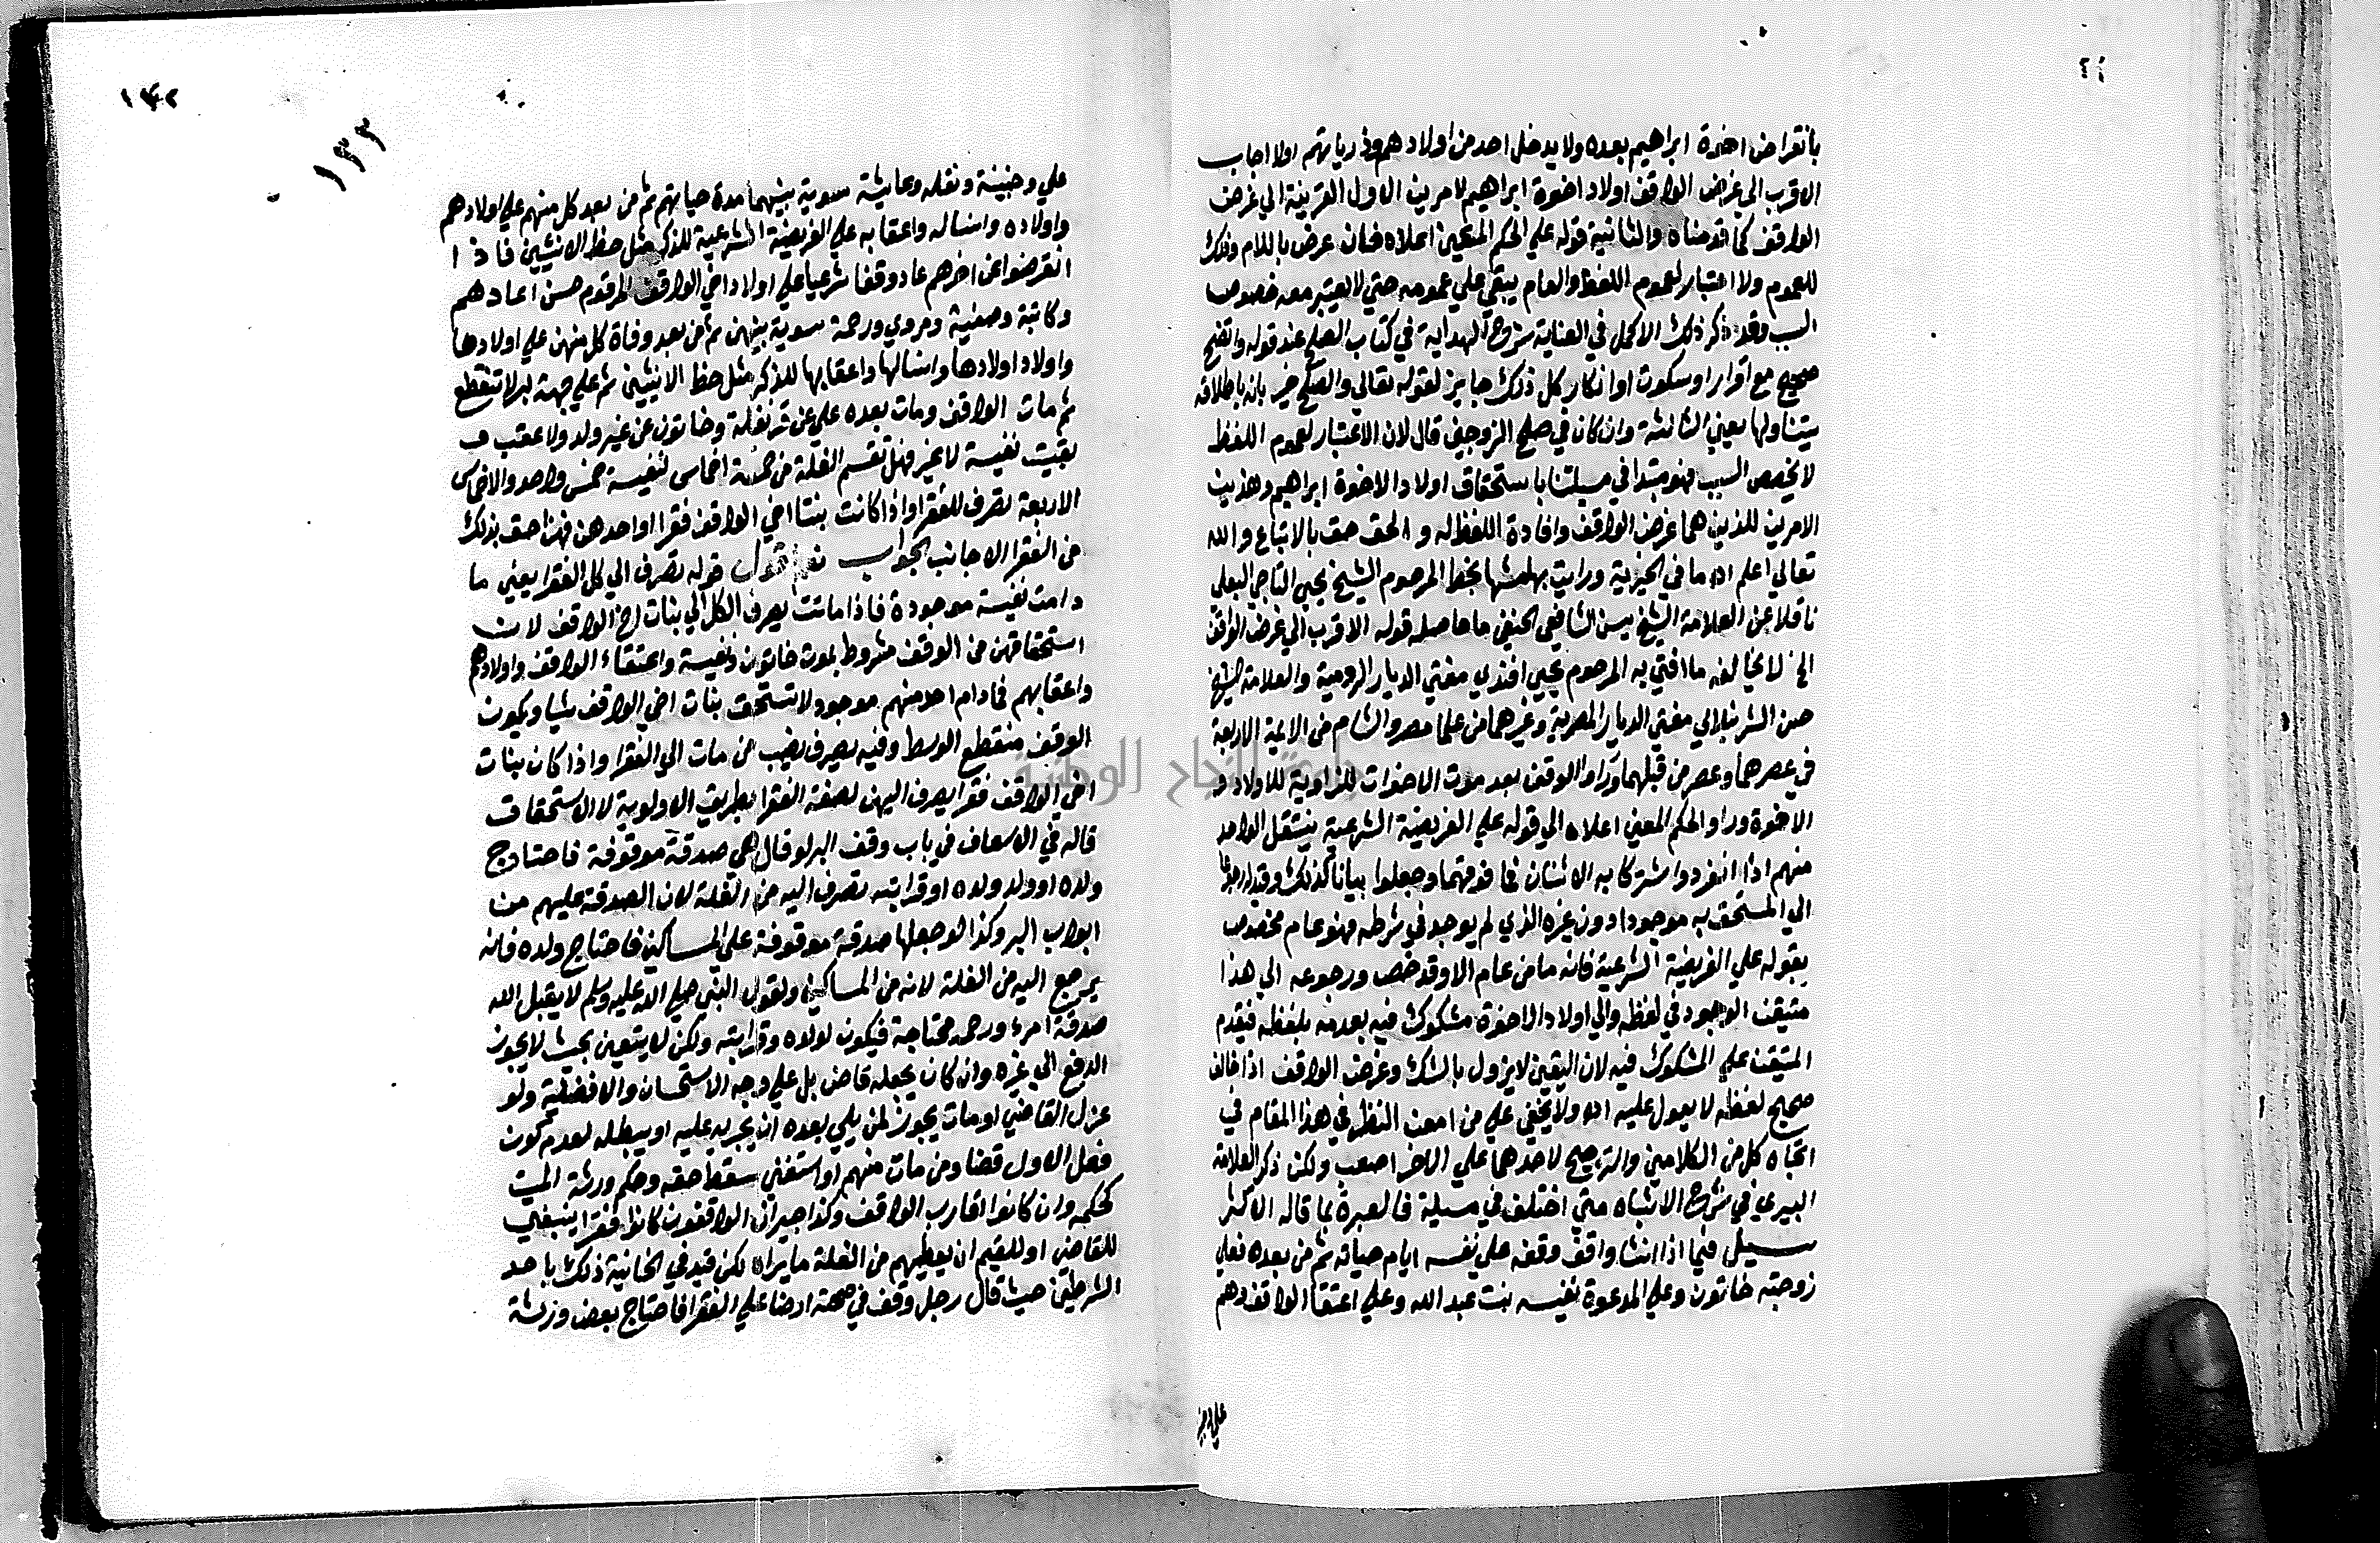 بانقراض اخوة ابراهيم بعده ولا يدخل احد من اولادهم وذرياتهم اولا اجاب
الاقرب الى غرض الواقف اولاد اخوة ابراهيم لامرين الاول القرينة الى غرض
الواقف كما قدمناه والثانية قوله علي الحكم المعين اعلاه فان عرض باللام وذلك
للعموم ولا اعتبار لعموم اللفظ والعام يبقي علي عمومه حتي لا يعتبر معه خصوص
السبب وقد ذكر ذلك الاكمل في العناية شرح الهداية في كتاب الصلح عند قوله والصلح
صحيح مع اقرار او سكوت او انكار كل ذلك جايز لقوله تعالي والصلح خير بانه باطلاقه
يتناولها يعني الثالثة وان كان في صلح الزوجين قال لان الاعتبار لعموم اللفظ
لا لخصوص السبب فهو مبتدا في مسيلتنا باستحقاق اولاد الاخوة ابراهيم وهذين
الامرين اللذين هما غرض الواقف وافادة اللفظ له و الحق حق بالاتباع والله
تعالي اعلم اه ما في الخيرية ورايت بهامشها بخط المرحوم الشيخ يحيي التاجي البعلي
ناقلا عن العلامة الشيخ يس الشافعي الحنفي ما حاصله قوله الاقرب الي غرض الواقف
الخ لا يخالفه ما افتي به المرحوم يحيي افندي مفتي الديار الرومية والعلامة الشيخ
حسن الشرنبلالي مفتي الديار المصرية وغيرهما من علما مصر والشام من الايمة الاربعة
في عصرهما وعصر من قبلهما وراوا الوقف بعد موت الاخوات للزاوية للاولاد و
الاخوة وراوا الحكم المعين اعلاه الي قوله علي الفريضة الشرعية ينتقل الواحد
منهم اذا انفرد واشتركا به الاثنان فما فوقهما وجعلوا بيانا لذلك وقيد راجعا
الي المستحق به موجودا دون غيره الذي لم يوجد في شرطه فهو عام مخصوص
بقوله علي الفريضة الشرعية فانه ما من عام الا وقد خص ورجوعه الي هذا
متيقن الوجود في لفظه والي اولاد الاخوة مشكوك فيه بعدمه بلفظه فيقدم
المتيقن علي المشكوك فيه لان اليقين لا يزول بالشك وغرض الواقف اذا خالف
صحيح لفظه لا يعول عليه اه ولا يخفي علي من امعن النظر في هذا المقام في
اتجاه كل من الكلامين والترجيح لاحدهما علي الاخر اصعب ولكن ذكر العلامة
البيري في شرح الاشباه متي اختلف في مسيلة فالعبرة بما قاله الاكثر
سيل فيما اذا انشا واقف وقفه علي نفسه ايام حياته ثم من بعده فعلي
زوجته خاتون وعلي المدعوة نفيسه بنت عبد الله وعلي اعتقا الواقف وهم
علي و
١٤٢
١٣٢
علي وحنيفة ونفله وعايشة سوية بينهما مدة حياتهم ثم من بعد كل منهم علي اولادهم
واولاده وانساله واعقابه علي الفريضة الشرعية للذكر مثل حظ الانثيين فاذا
انقرضوا عن اخرهم عاد وقفا شرعيا علي اولاد اخي الواقف المرقوم حسن اعادهم
وكاتبة وصفية ومروي ورحمة سوية بينهن ثم من بعد وفاة كل منهن علي اولادها
واولاد اولادها وانسالها واعقابها للذكر مثل حظ الانثيين ثم علي جهة بر لا تنقطع
ثم مات الواقف ومات بعده علي عن قرنفلة وخاتون عن غير ولد ولا عقب و
بقيت نفيسة لا غير فهل تقسم الغلة من خمسة اخماس لنفيسة خمس واحد والاخماس
الاربعة تصرف للفقرا واذا كانت بنتا اخي الواقف فقرا او احدهن فهن احق بذلك
من الفقرا الاجانب الجواب نعم اقول قوله تصرف الي كل الفقرا يعني ما
دامت نفيسة موجودة فاذا ماتت يصرف الكل الي بنات اخ الواقف لان
استحقاقهن من الوقف مشروط بموت خاتون ونفيسة واعتقاء الواقف واولادهم
واعقابهم فما دام احد منهم موجود لا تستحق بنات اخي الواقف شيا ويكون
الوقف منقطع الوسط وفيه يصرف نصيب من مات الي الفقرا واذا كان بنات
اخي الواقف فقرا يصرف اليهن لصفة الفقرا بطريق الاولوية لا الاستحقاق
قاله في الاسعاف في باب وقف البر لو قال هي صدقة موقوفة فاحتاج
ولده او ولد ولده او قرابته تصرف اليه من الغلة لان الصدقة عليهم من
ابواب البر وكذا لو جعلها صدقة موقوفة علي المساكين فاحتاج ولده فانه
يرجع اليه من الغلة لانه من المساكين ولقول النبي صلي الله عليه وسلم لا يقبل الله
صدقة امرء ورحمه محتاجة فيكون لولده وقرابته ولكن لا يتعين بحيث لا يجوز
الدفع الي غيره وان كان يجعله قاض بل علي وجه الاستحسان والافضلية ولو
عزل القاضي او مات يجوز لمن يلي بعده ان يجريه عليه او يبطله لعدم كون
فعل الاول قضا ومن مات منهم او استغني سقط حقه وحكم ورثة الميت
كحكمه وان كانوا اقارب الواقف وكذا جيران الواقف وان كانوا فقرا ينبغي
للقاضي او للقيم ان يعطيهم من الغلة ما يراه لكن قيد في الخانية ذلك باحد
الشرطين حيث قال رجل وقف في صحته ارضا علي الفقرا فاحتاج بعض ورثة
جامعة النجاح الوطنية